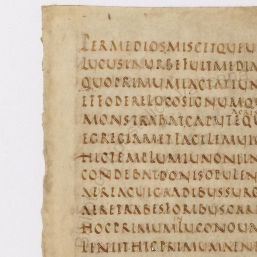 PERMEDIOSMISCITQUEUI
LUCUSINURBEFUITMEDIA
QUOPRIMUMIACTATIUN
EFFODERELOCOSIGNUMQ
MONSTRARATCAPUTEQU
EGREGIAMETFACILEMUI
HICTEMPLUMIUNONIIN
CONDEBATDONISOPULEN
AEREACUIGRADIBUSSUR
AERETRABESFORIBUSCAR
HOCPRIMUMLUCONOUA
LENIITHICPRIMUMAEN